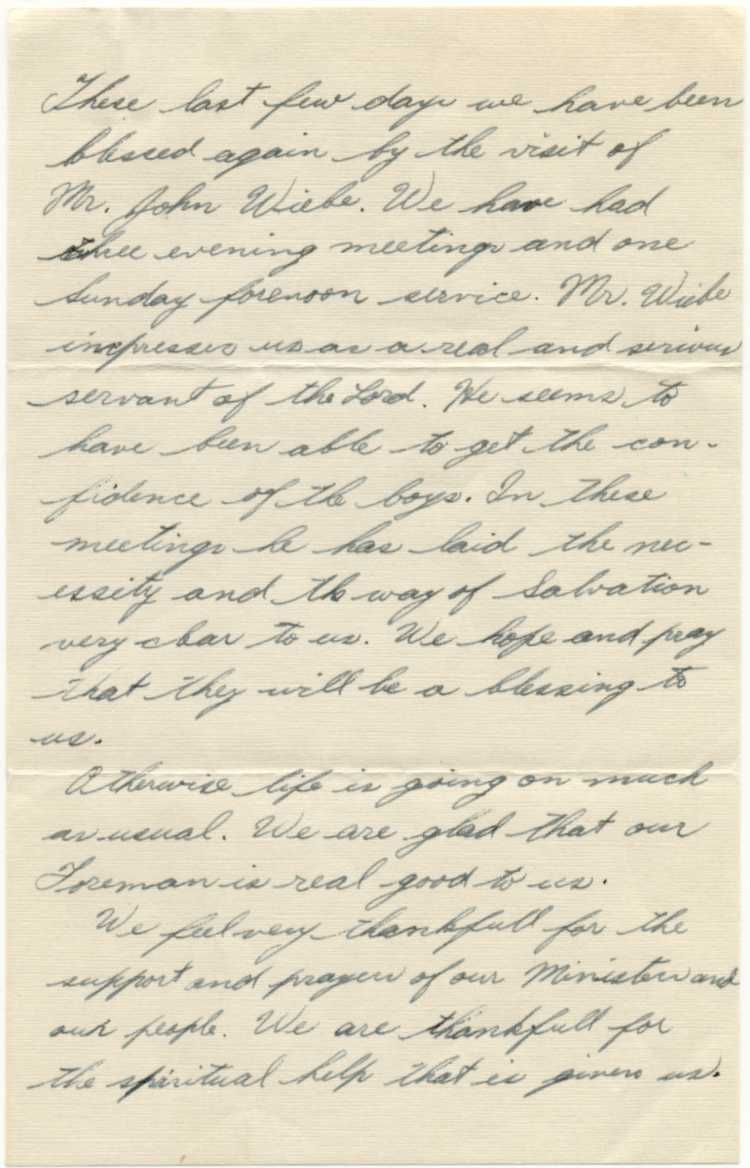 These last few days we have been
blessed again by the visit of
Mr. John Wiebe. We have had
three evening meetings and one
Sunday forenoon service. Mr. Wiebe
impresses us as a real and serious
servant of the Lord. He seems to
have been able to get the con-
fidence of the boys. In these
meetings he has laid the nec-
essity and the way of Salvation
very clear to us. We hope and pray
that they will be a blessing to
us.
Otherwise life is going on much
as usual. We are glad that our
Foreman is real good to us.
We feel very thankfull for the
support and prayers of our Ministers and
our people. We are thankfull for
the spiritual help that is given us.